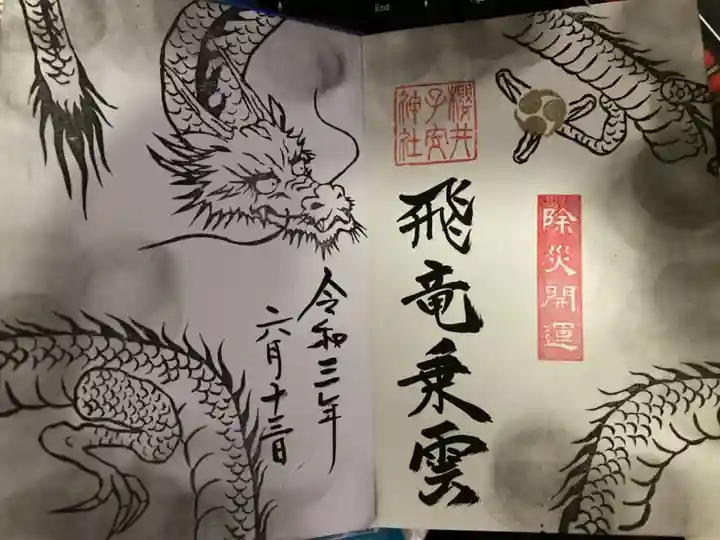 End
櫻井
子安
神社
除災開運
飛竜乗雲
令和三年
六月十三日